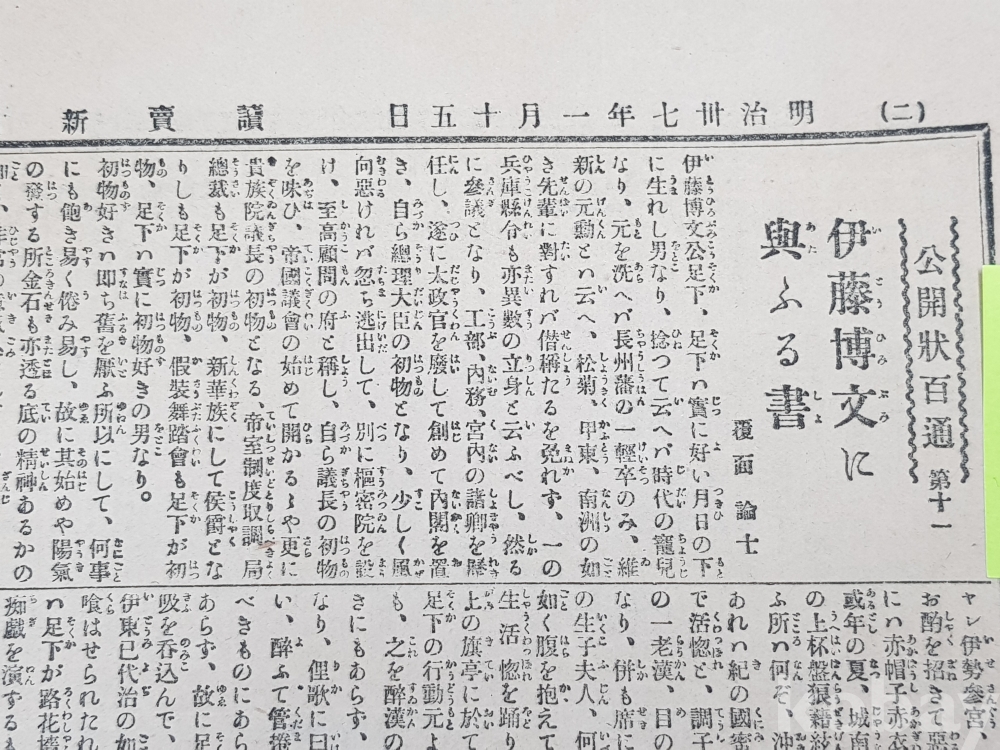 (二)
明治卅七年一月十五日
讀賣新
公開狀百通 第十一
伊藤博文に
與ふる書
覆面論士
伊藤博文公足下、足下ハ實に好い月日の下
に生れし男なり、捻つて云へバ時代の寵兒
なり、元を洗へバ長州藩の一輕卒のみ、維
新の元勳とハ云へ、松菊、甲東、南洲の如
き先輩に對すれバ僣稱たるを免れず、一の
兵庫縣令も亦異數の立身と云ふべし、然る
に參議となり、工部、内務、宮内の諸卿を歷
任し、遂に太政官を廢して創めて内閣を置
き、自ら總理大臣の初物となり、少しく風
向惡ければ忽ち逃出して、別に樞密院を設
け、至高顧問の府と稱し、自ら議長の初物
を味ひ、帝國議會の始めて開かるゝや更に
貴族院議長の初物となる、帝室制度取調局
總裁も足下が初物、新華族にして侯爵とな
りしも足下が初物、假裝舞踏會も足下が初
物、足下ハ實に初物好きの男なり。
初物好きハ即ち舊を厭ふ所以にして、何事
にも飽き易く倦み易し、故に其始めや陽氣
の發する所金石も亦透る底の精神あるかの
ヤレ伊勢參宮、
お酌を招きて惡
にハ赤帽子赤衣
或年の夏、城南
の上杯盤狼藉
ふ所ハ何ぞ、油
あれハ紀の國密
で活惚と、調子
の一老漢、目の
なり、併も席に
の生子夫人、何
如く腹を抱えて
生活惚を踊り
上の旗亭に於て
足下の行動元よ
も、之を醉漢の
きにもあらず、
なり、俚歌に曰
い、醉ふて管捲
べきものにあら
あらず、故に足
吸を呑込んで、
伊東巳代治の如
喰はせられたれ
ハ足下が路花
痴戲を演ずるも